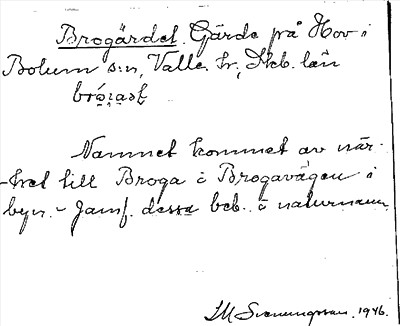 Brogärdet. Gärde på Hov i
Bolum s:n, Valle hr, Skb. län
Namnet kommet av när-
-het till Broga å Brogavägen i
byn. - Jämf. dessa beb. å naturnamn
SM Svenungsson 1946.